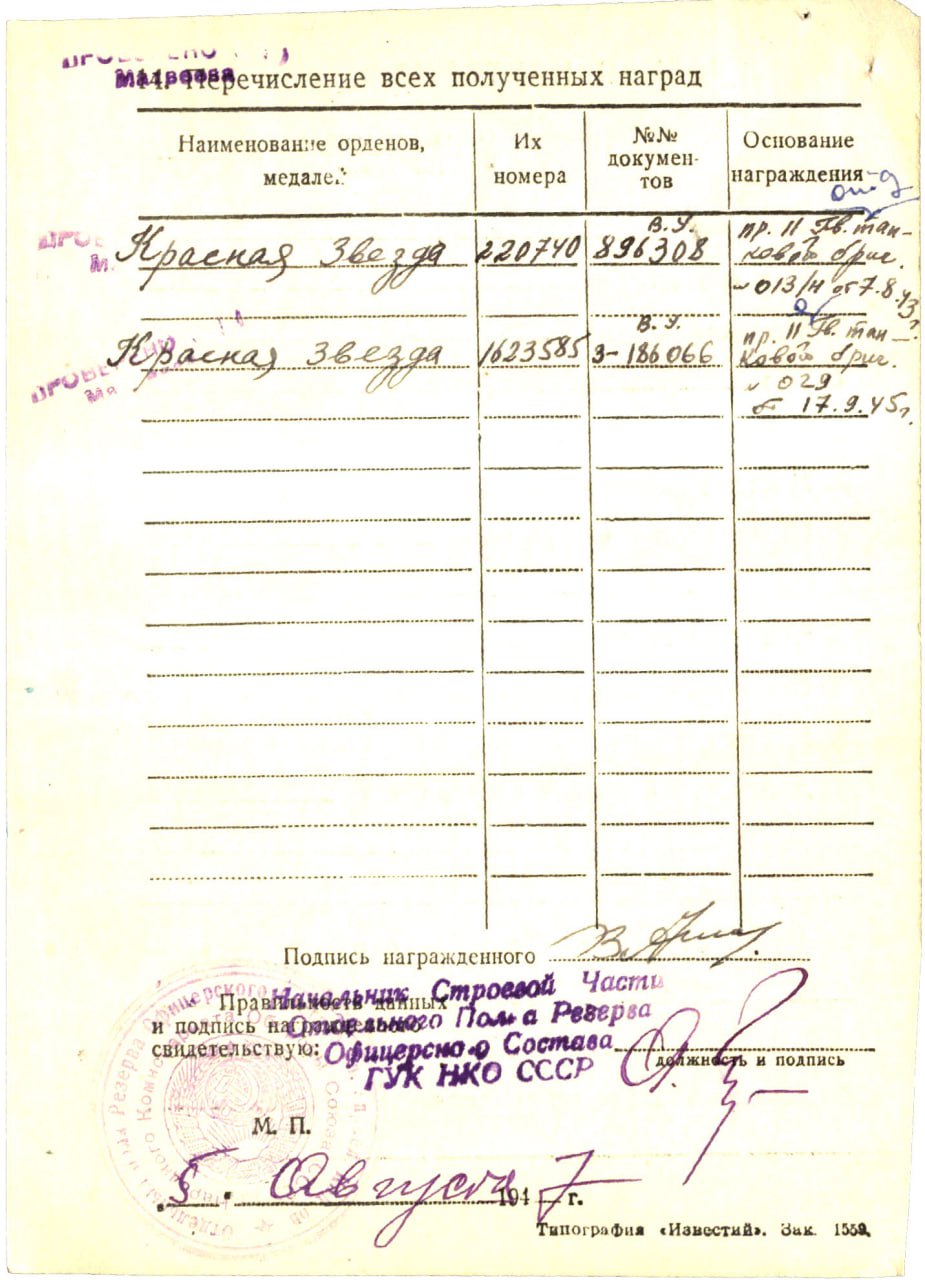 ПРОВЕРЕНО
Матвеева
14. Перечисление всех полученных наград
Наименование орденов, медалей
Их номера
№№ документов
Основание награждения
Красная Звезда 220740 В.У. 896308 пр. 11 Гв. тан-
ковой бриг.
№ 013/н от 7.8.43
Красная Звезда 1623585 В.У. З-186066 пр. 11 Гв. тан-
ковой бриг.
№ 029
от 17.9.45г.
ПРОВЕРЕНО
Подпись награжденного
Правильность данных
и подпись награжденного
свидетельствую:
Начальник Строевой Части
Отдельного Полка Резерва
Офицерского Состава
ГУК НКО СССР
должность и подпись
М. П.
5. Августа 1947 г.
Типография «Известий». Зак. 1559.